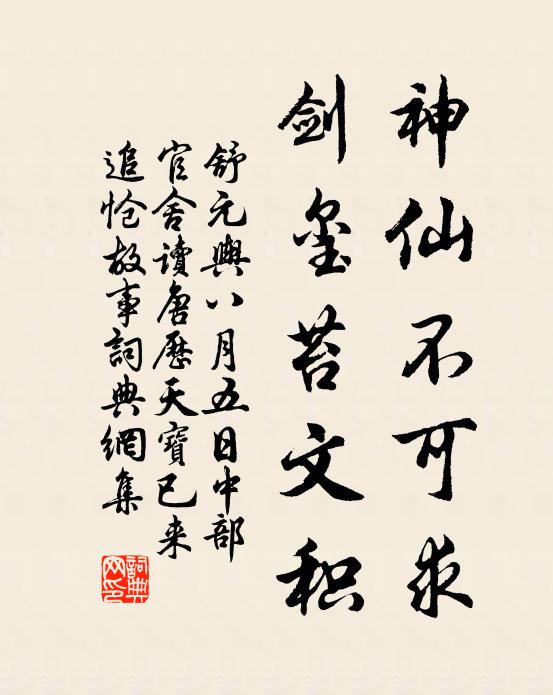 神仙不可求
剑玺苔文积
舒元舆八月五日中部
官舍讀唐歷天寶已来
追怆故事詞典網集
詞典网印